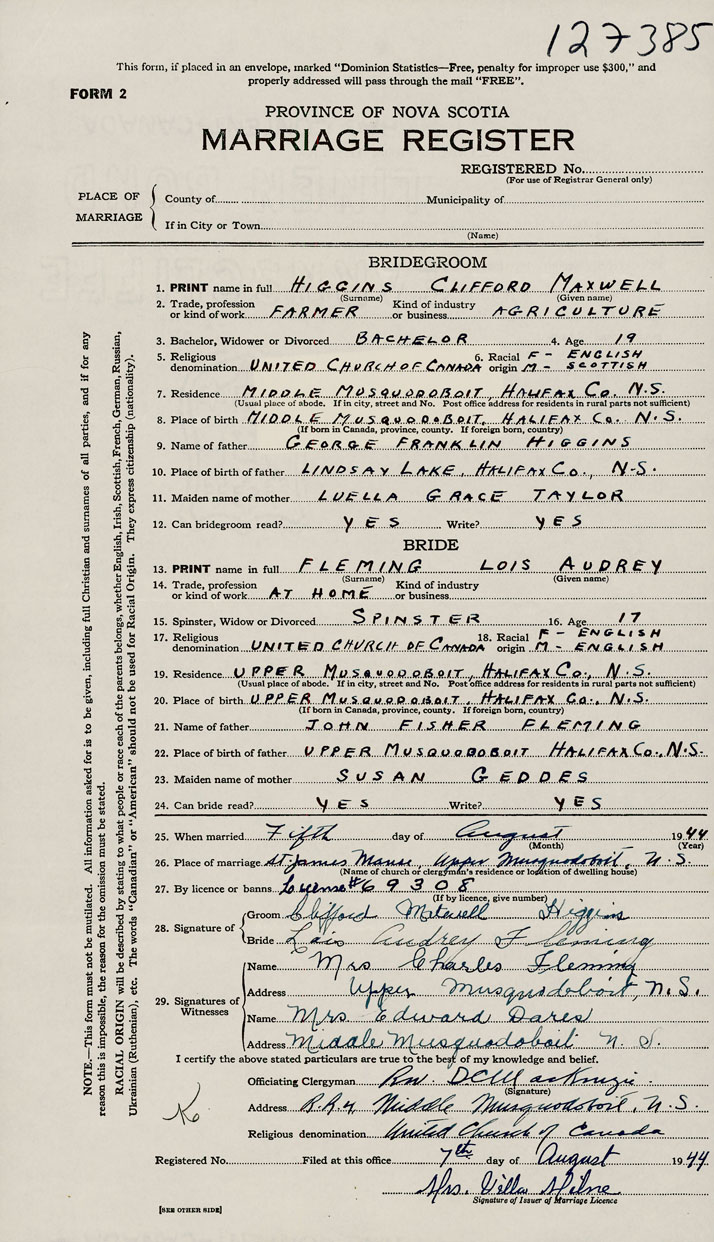 127385
This form, if placed in an envelope, marked "Dominion Statistics—Free, penalty for improper use $300," and
properly addressed will pass through the mail "FREE".
FORM 2
PROVINCE OF NOVA SCOTIA
MARRIAGE REGISTER
REGISTERED No.
(For use of Registrar General only)
PLACE OF MARRIAGE
County of Municipality of
If in City or Town
(Name)
BRIDEGROOM
1. PRINT name in full HIGGINS CLIFFORD MAXWELL
(Surname) (Given name)
2. Trade, profession or kind of work FARMER Kind of industry or business AGRICULTURE
3. Bachelor, Widower or Divorced BACHELOR 4. Age 19
5. Religious denomination UNITED CHURCH OF CANADA 6. Racial origin F- ENGLISH M- SCOTTISH
7. Residence MIDDLE MUSQUODOBOIT, HALIFAX CO. N.S.
(Usual place of abode. If in city, street and No. Post office address for residents in rural parts not sufficient)
8. Place of birth MIDDLE MUSQUODOBOIT, HALIFAX CO. N.S.
(If born in Canada, province, county. If foreign born, country)
9. Name of father GEORGE FRANKLIN HIGGINS
10. Place of birth of father LINDSAY LAKE, HALIFAX CO., N.S.
11. Maiden name of mother LUELLA GRACE TAYLOR
12. Can bridegroom read? YES Write? YES
BRIDE
13. PRINT name in full FLEMING LOIS AUDREY
(Surname) (Given name)
14. Trade, profession or kind of work AT HOME Kind of industry or business
15. Spinster, Widow or Divorced SPINSTER 16. Age 17
17. Religious denomination UNITED CHURCH OF CANADA 18. Racial origin F- ENGLISH M- ENGLISH
19. Residence UPPER MUSQUODOBOIT, HALIFAX CO., N.S.
(Usual place of abode. If in city, street and No. Post office address for residents in rural parts not sufficient)
20. Place of birth UPPER MUSQUODOBOIT, HALIFAX CO., N.S.
(If born in Canada, province, county. If foreign born, country)
21. Name of father JOHN FISHER FLEMING
22. Place of birth of father UPPER MUSQUODOBOIT HALIFAX CO., N.S.
23. Maiden name of mother SUSAN GEDDES
24. Can bride read? YES Write? YES
25. When married Fifth day of August 1944
(Month) (Year)
26. Place of marriage St James Manse, Upper Musquodoboit, N.S.
(Name of church or clergyman's residence or location of dwelling house)
27. By licence or banns License #69308
(If by licence, give number)
28. Signature of
Groom Clifford Maxwell Higgins
Bride Lois Audrey Fleming
29. Signatures of Witnesses
Name Mrs Charles Fleming
Address Upper Musquodoboit, N.S.
Name Mrs Edward Dares
Address Middle Musquodoboit N.S.
I certify the above stated particulars are true to the best of my knowledge and belief.
Officiating Clergyman Rev. D C MacKenzie.
(Signature)
Address R.R.4 Middle Musquodoboit, N.S.
Religious denomination United Church of Canada
Registered No. Filed at this office 7th day of August 1944
Mrs. Villa Milne
Signature of Issuer of Marriage Licence
[SEE OTHER SIDE]
NOTE.—This form must not be mutilated. All information asked for is to be given, including full Christian and surnames of all parties, and if for any
reason this is impossible, the reason for the omission must be stated.
RACIAL ORIGIN will be described by stating to what people or race each of the parents belongs, whether English, Irish, Scottish, French, German, Russian,
Ukrainian (Ruthenian), etc. The words "Canadian" or "American" should not be used for Racial Origin. They express citizenship (nationality).